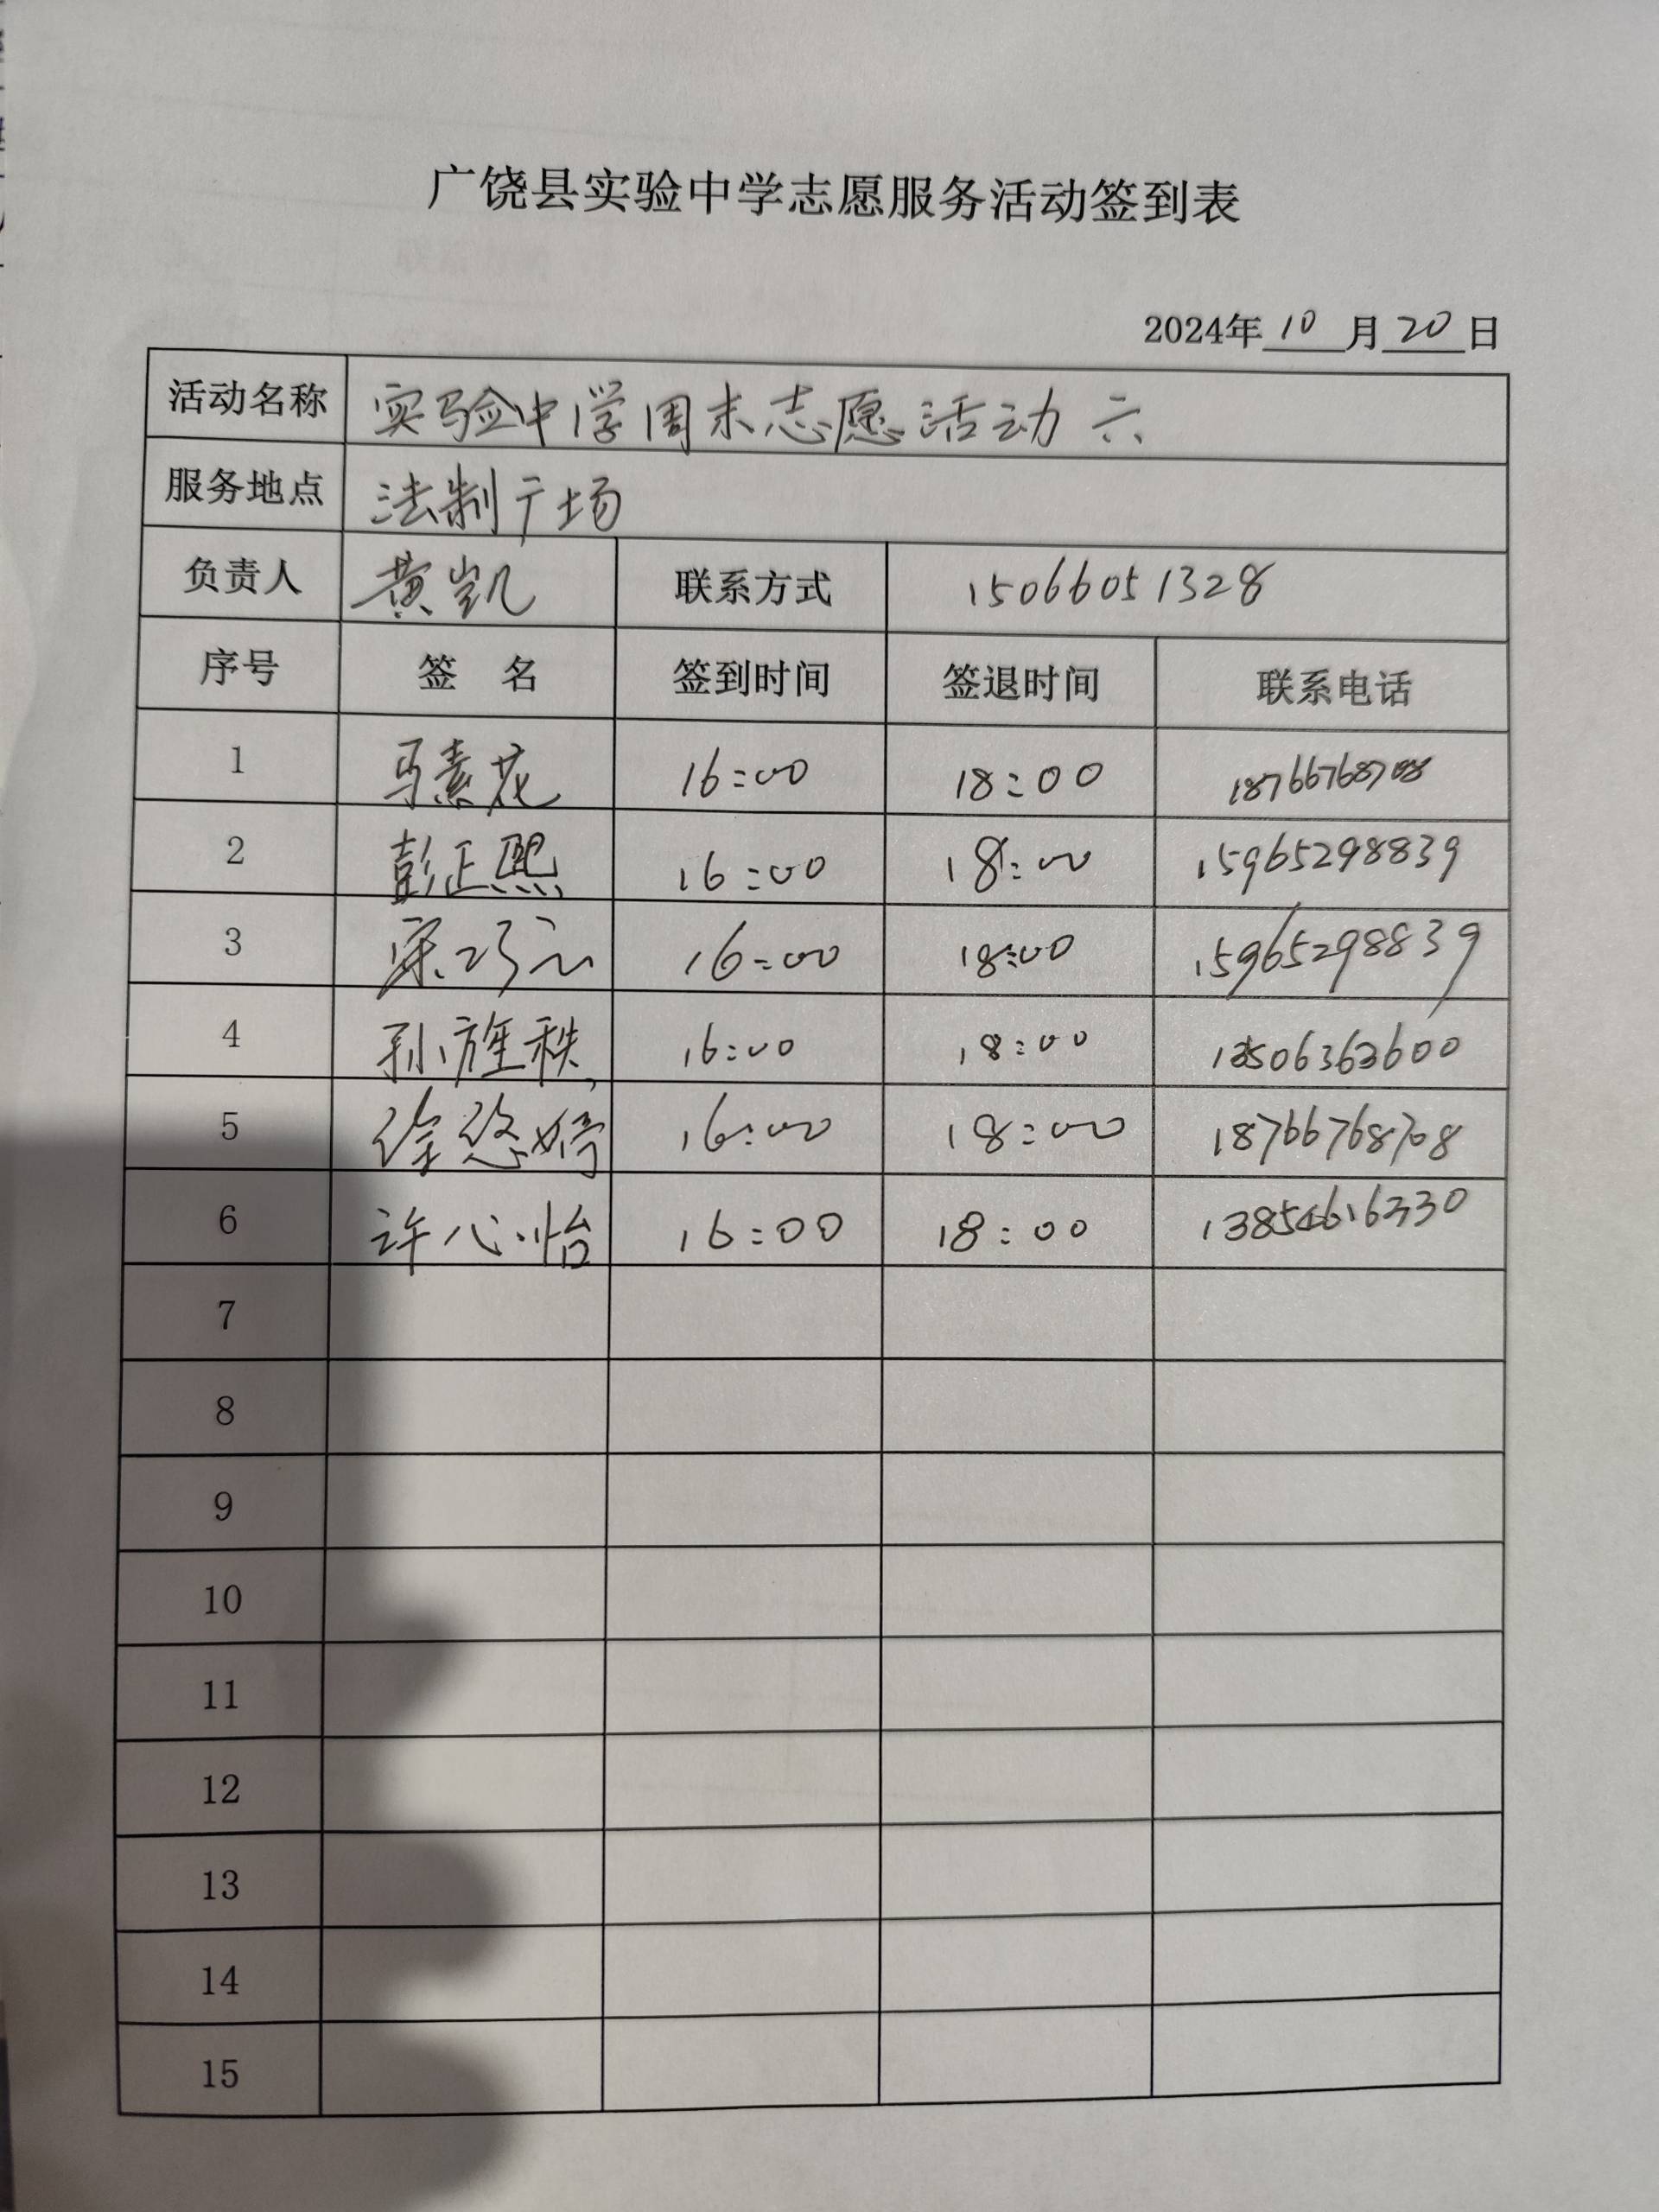 广饶县实验中学志愿服务活动签到表
2024年10月20日
活动名称 实验中学周末志愿活动六
服务地点 法制广场
负责人 黄凯 联系方式 15066051328
序号 签 名 签到时间 签退时间 联系电话
1 马素花 16:00 18:00 18766768708
2 彭正熙 16:00 18:00 15965298839
3 宋巧 16:00 18:00 15965298839
4 孙旌秩 16:00 18:00
5 徐悠婷 16:00 18:00 18766768708
6 许心怡 16:00 18:00
7
8
9
10
11
12
13
14
15